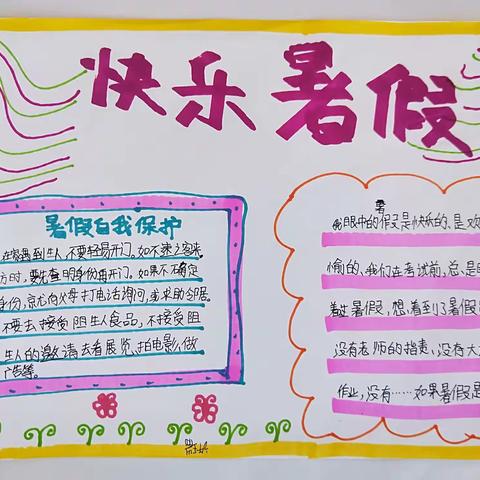 快乐暑假
暑假自我保护
在家遇到生人,不要轻易开门。如不速之客来
方时,要先查明身份再开门。如果不确定
身份,就向父母打电话询问,或求助邻居。
不要去接受陌生人食品,不接受陌
生人的邀请去看展览、拍电影、做
广告等。
暑
我眼中的假是快乐的、是欢
愉的、我们在考试前,总是盼
着暑假,想,看到了暑假
没有老师的指责,没有大
作业,没有……如果暑假是